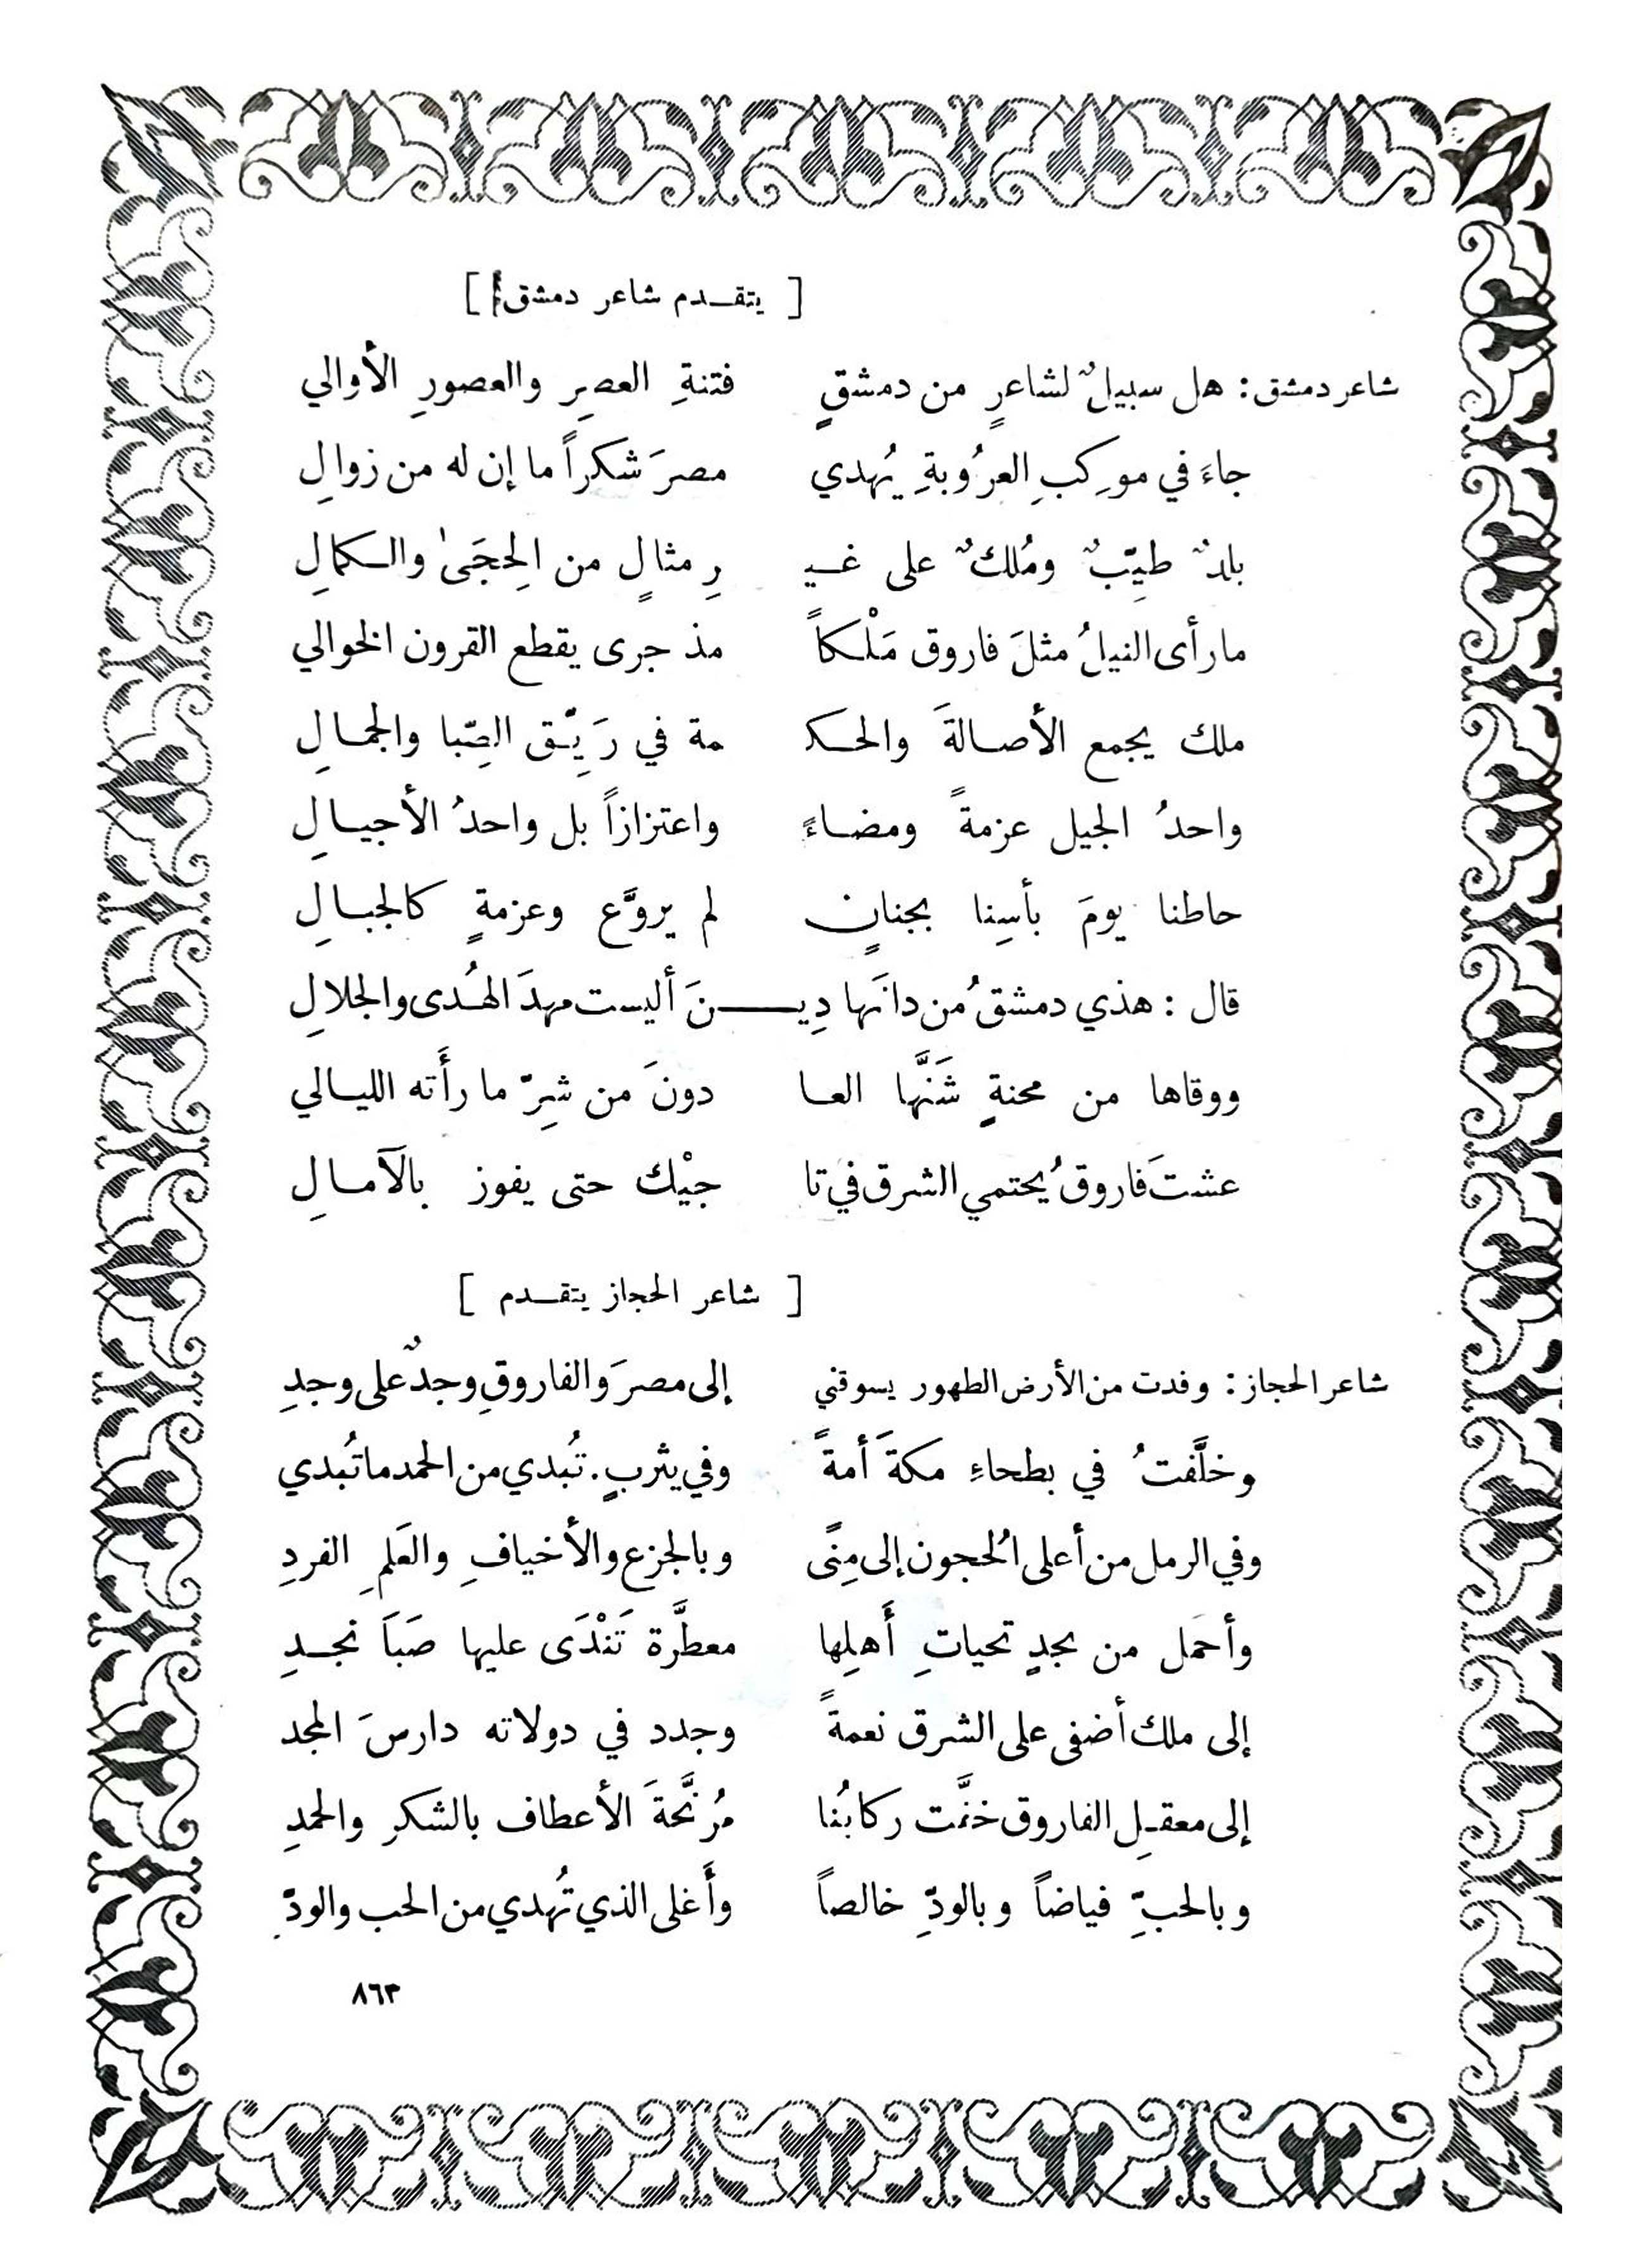 [ يتقـدم شاعر دمشق ]
شاعر دمشق : هل سبيلٌ لشاعرٍ من دمشقٍ فتنةِ العصرِ والعصورِ الأوالي
جاءَ في موكبِ العرُوبةِ يُهدي مصرَ شكراً ما إن له من زوالِ
بلدٌ طيّبٌ ومُلكٌ على غـيـ رِ مثالٍ من الحِجَىٰ والـكمالِ
ما رأى النيلُ مثلَ فاروق مَلْـكاً مذ جرى يقطع القرون الخوالي
ملك يجمع الأصـالةَ والحـكـ مة في رَيِّـق الصِّبا والجمـالِ
واحدُ الجيل عزمةً ومضـاءً واعتزازاً بل واحدُ الأجيـالِ
حاطنا يومَ بأسِنا بجنانٍ لم يروَّع وعزمةٍ كالجبـالِ
قال : هذي دمشقُ من دانَها دِيـــنَ أليست مهدَ الهُدى والجلالِ
ووقاها من محنةٍ شَنَّها العـا دونَ من شرِّ ما رأَته الليـالي
عشتَ فاروقُ يحتمي الشرق في تا جيْك حتى يفوز بالآمـالِ
[ شاعر الحجاز يتقـدم ]
شاعر الحجاز : وفدت من الأرض الطهور يسوقني إلى مصرَ والفاروقِ وجدٌ على وجدِ
وخلَّفتُ في بطحاءِ مكةَ أمةً وفي يثربٍ. تُبدي من الحمد ما تُبدي
وفي الرمل من أعلى الُحجون إلى مِنًى وبالجزع والأخيافِ والعَلمِ الفردِ
وأحمل من نجدٍ تحياتِ أَهلِها معطَّرة تَنْدَى عليها صَبَا نجـدِ
إلى ملك أضفى على الشرق نعمةً وجدد في دولاته دارسَ المجد
إلى معقـلِ الفاروق خنَّت ركابُنا مُرنَّحةَ الأعطاف بالشكرِ والحمدِ
وبالحبِّ فياضاً وبالودِّ خالصاً وأَغلى الذي تُهدي من الحب والودِّ
٨٦٣